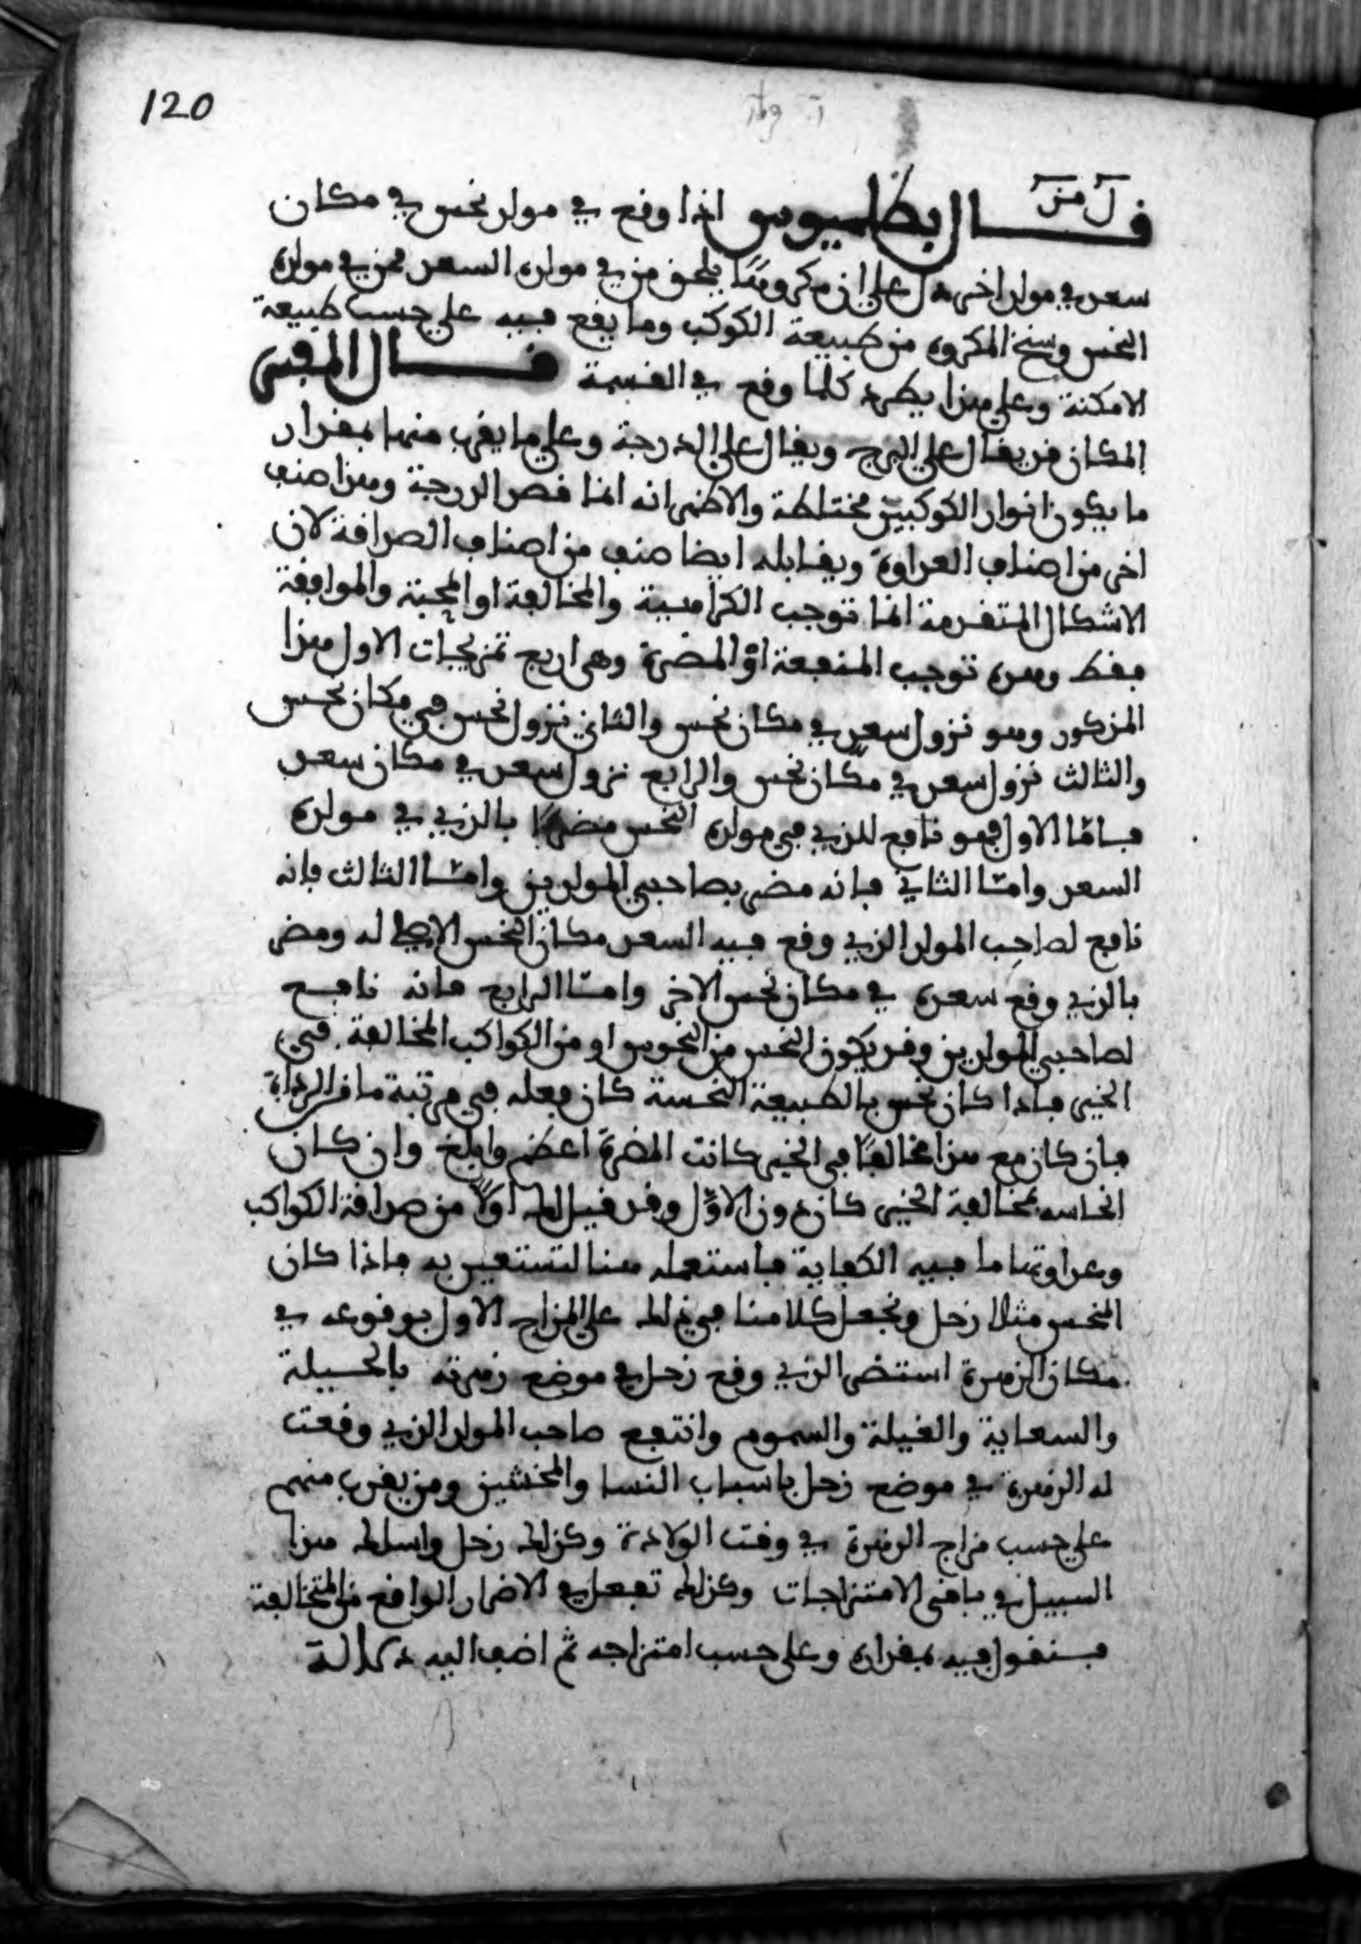 120
قال بطلميوس اذا وقع في مولد نحس في مكان
سعد في مولد اخر دل على ان مكروها يلحق من في مولده السعد ممن في مولده
النحس وسنخ المكروه من طبيعة الكوكب وما يقع فيه على حسب طبيعة
الامكنة وعلى هذا يطرد كلما وقع في القسمة قال المفسر
المكان قد يقال على البرج ويقال على الدرجة وعلى ما يقرب منها بمقدار
ما يكون انوار الكوكبين مختلطة والاظهر انه انما قصد الدرجة وهذا صنف
اخر من اصناف العداوة ويقابله ايضا صنف من اصناف الصداقة لان
الاشكال المتقدمة انما توجب الكراهية والمخالفة او المحبة والموافقة
فقط وهذه توجب المنفعة او المضرة وهي اربع تمزيجات الاول هذا
المذكور وهو نزول سعد في مكان نحس والثاني نزول نحس في مكان نحس
والثالث نزول سعد في مكان نحس والرابع نزول سعد في مكان سعد
فامّا الاول فهو نافع للذي في مولده النحس مضر بالذي في مولده
السعد وامّا الثاني فانه مضر بصاحبي المولدين وامّا الثالث فانه
نافع لصاحب المولد الذي وقع فيه السعد مكان النحس له ومضر
بالذي وقع سعده في مكان نحس الاخر وامّا الرابع فانه نافع
لصاحبي المولدين وقد يكون النحس من النحوس او من الكواكب المخالفة في
الحيز فاذا كان نحس بالطبيعة النحسة كان فعله في مرتبة ما من الرداة
فان كان مع هذا مخالفًا في الحيز كانت المضرة اعظم وابلغ وان كان
انحاسه بمخالفة الحيز كان دون الاوّل وقد قيل لك اولًا من صداقة الكواكب
وعداوتها ما فيه الكفاية فاستعمله هنا لتستعين به فاذا كان
النحس مثلا زحل ونجعل كلامنا في ذلك على المزاج الاول بوقوعه في
مكان الزهرة استضر الذي وقع زحل في موضع زهرته بالحيلة
والسعاية والغيلة والسموم وانتفع صاحب المولد الذي وقعت
له الزهرة في موضع زحل باسباب النسا والمخنثين ومن يقرب منهم
على حسب مزاج الزهرة في وقت الولادة وكذلك زحل واسلك هذا
السبيل في باقي الامتزاجات وكذلك تفعل في الاضرار الواقع من المتخالفة
فستقول فيه بمقداره وعلى حسب امتزاجه ثم اضف اليه دلالة